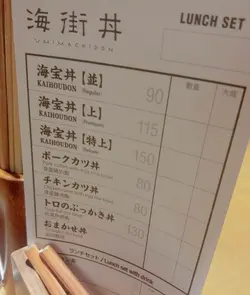 海街丼
UMIMACHIDON
LUNCH SET
数量
大盛
海宝丼【並】 90
KAIHOUDON (Regular)
海宝丼【上】 115
KAIHOUDON (Premium)
海宝丼【特上】 150
KAIHOUDON (Deluxe)
ポークカツ丼 80
チキンカツ丼 80
トロのぶっかき丼 80
おまかせ丼 130
ランチセット / Lunch set with drink